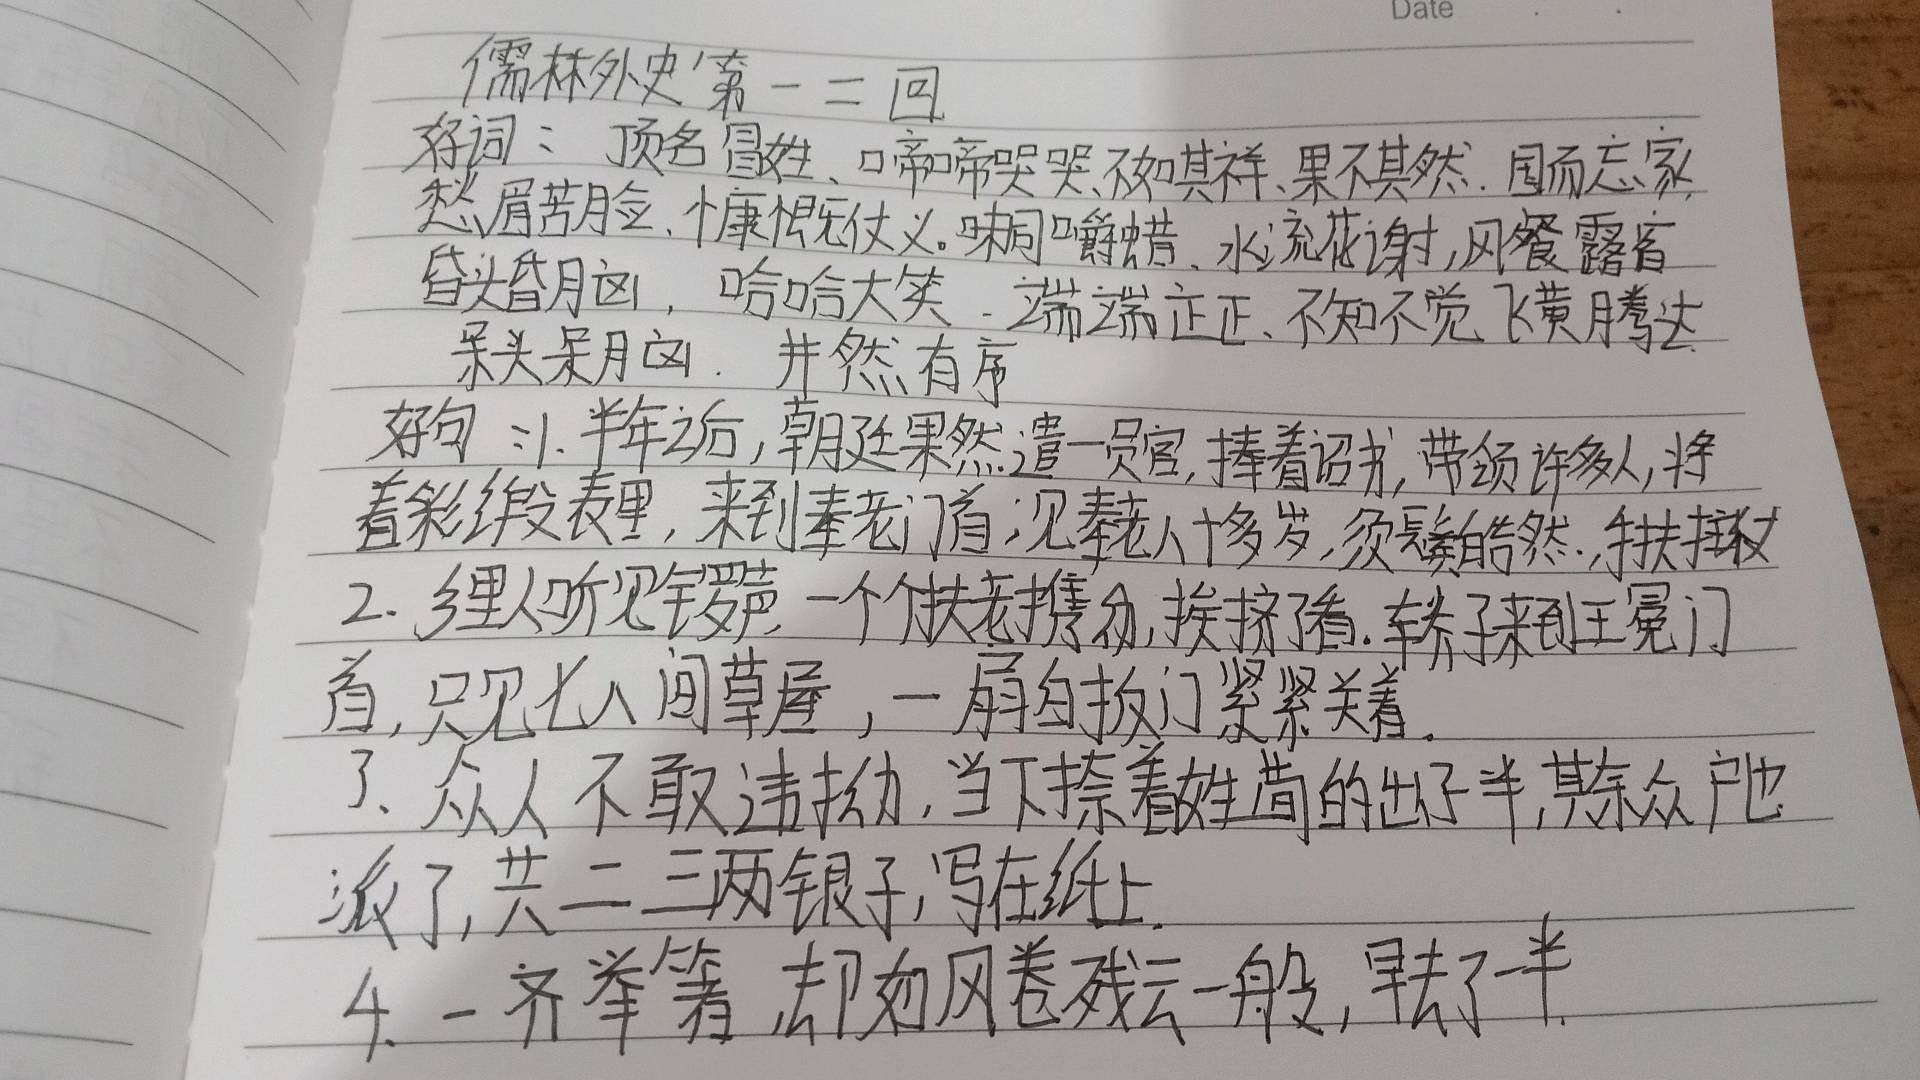 Date
儒林外史第一二回
好词：顶名冒姓、啼啼哭哭、不如其祥、果不其然．国而忘家，
愁眉苦脸、慷慨仗义。味同嚼蜡、水流花谢，风餐露宿
昏头昏脑，哈哈大笑．端端正正、不知不觉 飞黄腾达．
呆头呆脑．井然有序
好句：1．半年之后，朝廷果然遣一员官，捧着诏书，带领许多人，将
着彩缎表里，来到秦老门首；见秦老八十多岁，须鬓皓然，手扶拄杖
2．乡里人听见锣声，一个个扶老携幼，挨挤了看．轿子来到王冕门
首，只见七八间草屋，一扇白板门紧紧关着．
3、众人不敢违拗，当下捺着姓荀的出了一半，其余众户也
派了，共二三两银子，写在纸上．
4．一齐举箸，却如风卷残云一般，早去了一半．